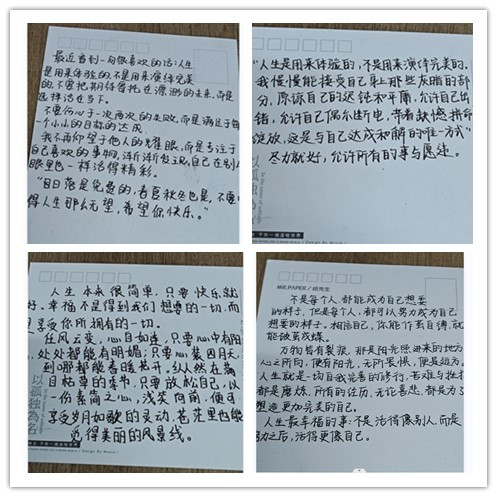 最近看到一句很喜欢的话:人生
是用来体验的,不是用来演绎完美
的,不要把期待寄托在漂渺的未来,而是
选择活在当下。
不要伤心于一次两次的失败,而是满足于每
一个小小的目标的达成
我不再仰望于他人的耀眼,而是专注于
自己喜欢的事物,渐渐发现,自己在别人
眼里也一样活得精彩。
“日落是免费的,春夏秋冬也是,不要
得人生那么无望,希望你快乐。”
“人生是用来体验的,不是用来演绎完美的。
我慢慢能接受自己身上那些灰暗的部
分,原谅自己的迟钝和平庸,允许自己出
错,允许自己偶尔断电,带着缺憾拼命
绽放,这是与自己达成和解的唯一方式”
尽力就好,允许所有的事与愿违。
以孤独為名
人生本来很简单,只要快乐就
好。幸福不是得到我们想要的一切,而
是享受你所拥有的一切。
任风云变,心自如莲,只要心中有阳
处处都能有明媚;只要心装四月天,
到哪都能春暖花开。纵人然在满
目枯草的季中,只要放松自己,以
一份素简之心,浅笑向前,便可
享受岁月如歌的灵动,苍茫里也能
觅得美丽的风景线。
以孤独為名
Design By Movie
MR.PAPER/纸先生
不是每个人,都能成为自己想要
的样子,但是每个人,都可以努力成为自己
想要的样子。相信自己,你能作茧自缚,就
能破茧成蝶。
万物皆有裂痕,那是阳光照进来的地方
心之所向,便有阳光,无所畏惧,便是远方。
人生就是一场自我完善的修行,苦难与挫折
都是磨炼,所有的经历,无论喜悲,都是为了
塑造更加完美的自己。
人生最幸福的事:不是活得像别人,而是
努力之后,活得更像自己。